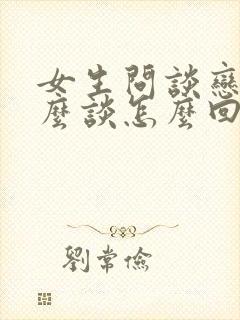 女生問談戀
麼談怎麼回
劉常儉